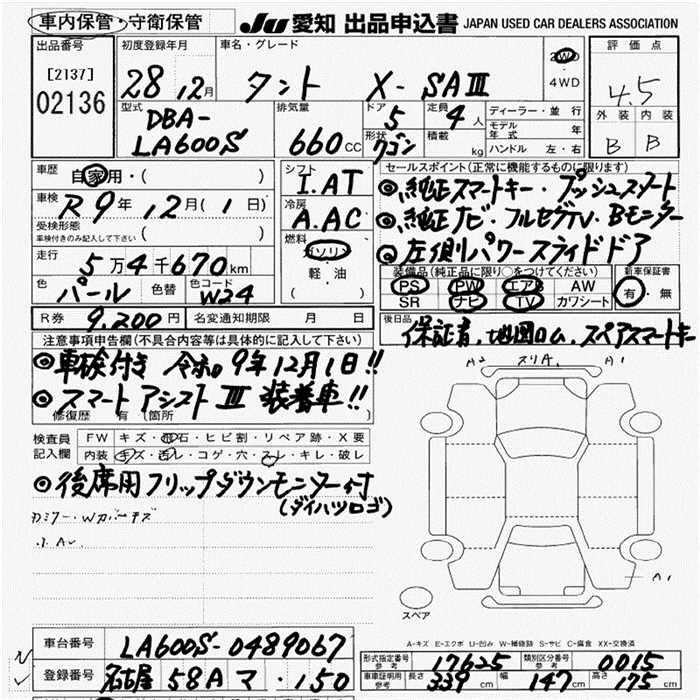 車内保管・守衛保管 JU 愛知 出品申込書 JAPAN USED CAR DEALERS ASSOCIATION
出品番号 初度登録年月 車名・グレード 2WD 4WD 評価点
[2137] 02136 28年12月 タント X-SAⅢ 4.5
型式 排気量 ドア 定員 ディーラー・並行 外装 内装
DBA-LA600S 660cc 5 4人 モデル年式 B B
形状 ワゴン 積載 kg ハンドル 左・右
車歴 自家用・( ) シフト I.AT セールスポイント(正常に機能するものに限ります)
車検 R9年12月(1日) 冷房 A.AC ◎純正スマートキー・プッシュスタート
受検形態 車検付きのみ記入して下さい ( ) ◎純正ナビ・フルセグTV・Bモニター
走行 5万4千670km 燃料 ガソリン 軽・油 ( ) ◎左側パワースライドドア
装備品(純正品に限り○をつけてください) 新車保証書
色 パール 色替 色コード W24 PS PW エアB AW 有・無
SR ナビ TV カワシート
R券 9,200円 名変通知期限 月 日 後日品 保証書、地図ROM、スペアスマートキー
注意事項申告欄(不具合内容等は具体的に記入して下さい)
◎車検付き 令和9年12月1日!!
◎スマートアシストⅢ装着車!!
修復歴 有 (箇所
A2 スリA1 A1
検査員記入欄 FW キズ・飛石・ヒビ割・リペア跡・X要
内装 キズ・汚レ・コゲ・穴・スレ・キレ・破レ
◎後席用フリップダウンモニター付
(ダイハツロゴ)
A1
スペア
A-キズ E-エクボ U-凹み W-補修跡 S-サビ C-腐食 XX-交換済
車台番号 LA600S-0489067
登録番号 名古屋 58A マ・150
形式指定番号 参考 17625 類別区分番号 参考 0015
車車証明用 参考 長さ 339cm 幅 147cm 高さ 175cm